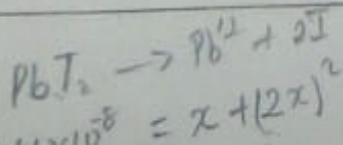 PbI₂ → Pb⁺² + 2I
10⁻⁸ = x + (2x)²